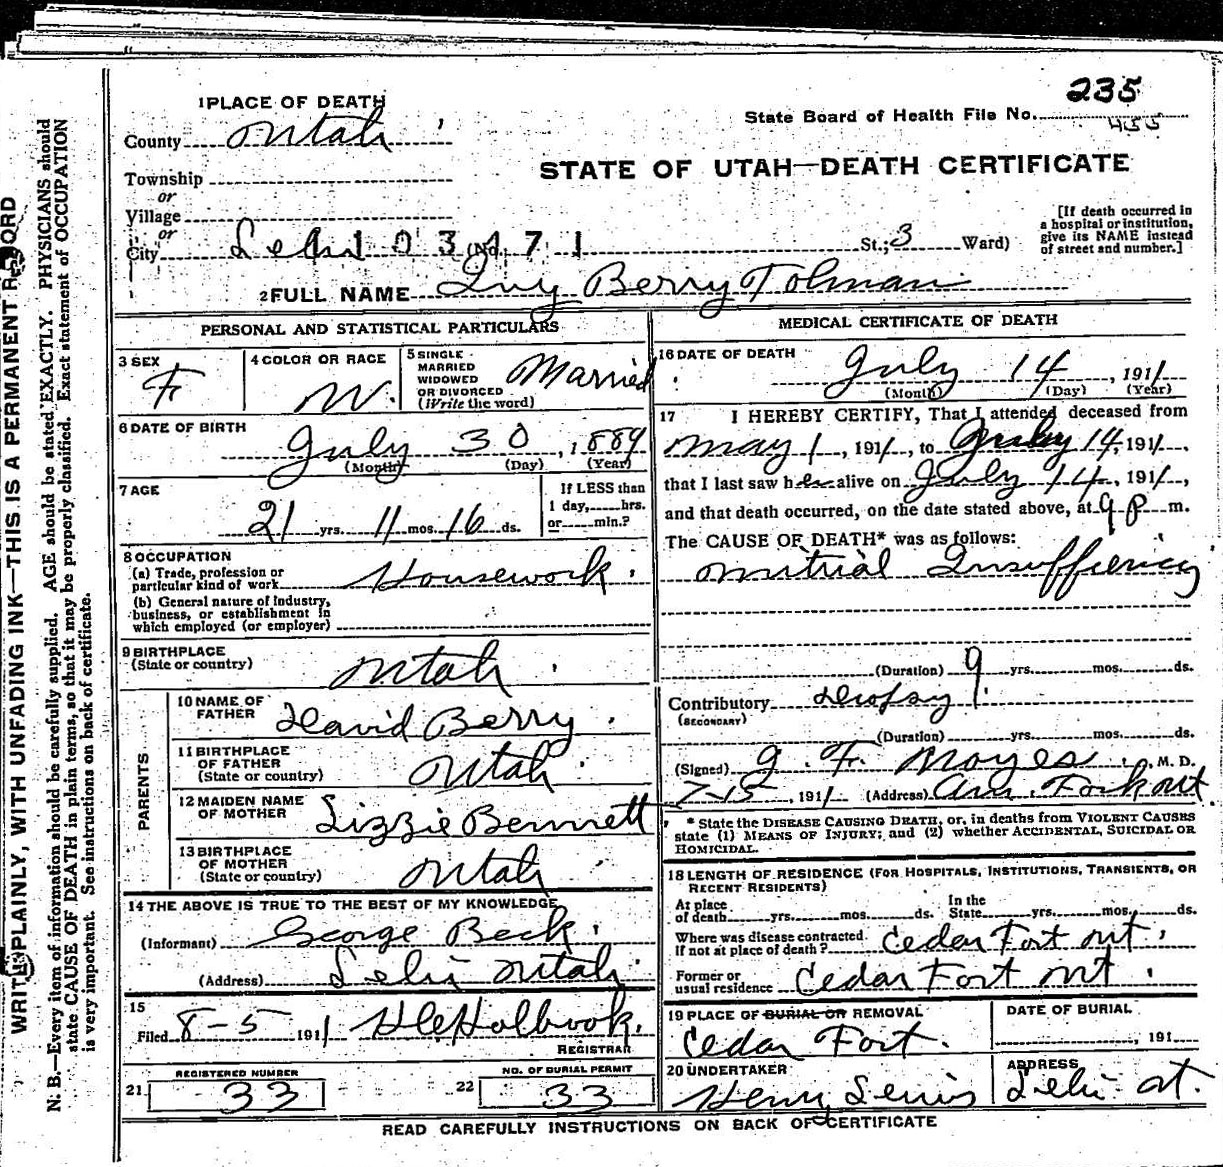 235
State Board of Health File No. 455
1 PLACE OF DEATH
County Utah
STATE OF UTAH—DEATH CERTIFICATE
Township
or
Village
or
City Lehi (No. St.; 3 Ward)
1 0 3 4 7 1
[If death occurred in
a hospital or institution,
give its NAME instead
of street and number.]
2 FULL NAME Ivy Berry Tolman
PERSONAL AND STATISTICAL PARTICULARS
3 SEX F
4 COLOR OR RACE W.
5 SINGLE
MARRIED
WIDOWED
OR DIVORCED
(Write the word) Married
6 DATE OF BIRTH
July 30, 1889
(Month) (Day) (Year)
7 AGE
21 yrs. 11 mos. 16 ds.
If LESS than
1 day, hrs.
or min.?
8 OCCUPATION
(a) Trade, profession or
particular kind of work Housework.
(b) General nature of industry,
business, or establishment in
which employed (or employer)
9 BIRTHPLACE
(State or country) Utah.
PARENTS
10 NAME OF
FATHER David Berry.
11 BIRTHPLACE
OF FATHER
(State or country) Utah.
12 MAIDEN NAME
OF MOTHER Lizzie Bennett
13 BIRTHPLACE
OF MOTHER
(State or country) Utah
14 THE ABOVE IS TRUE TO THE BEST OF MY KNOWLEDGE
(Informant) George Beck.
(Address) Lehi Utah.
15
Filed 8-5 1911 Holbrook.
REGISTRAR
REGISTERED NUMBER
21 33
NO. OF BURIAL PERMIT
22 33
MEDICAL CERTIFICATE OF DEATH
16 DATE OF DEATH
July 14, 1911
(Month) (Day) (Year)
17 I HEREBY CERTIFY, That I attended deceased from
May 1, 1911, to July 14, 1911,
that I last saw her alive on July 14, 1911,
and that death occurred, on the date stated above, at 9 P m.
The CAUSE OF DEATH* was as follows:
Mitrial Insufficiency
(Duration) 9 yrs. mos. ds.
Contributory Dropsy
(SECONDARY)
(Duration) yrs. mos. ds.
(Signed) G. F. Noyes, M. D.
7-15, 1911 (Address) Am. Fork Ut
* State the DISEASE CAUSING DEATH; or, in deaths from VIOLENT CAUSES
state (1) MEANS OF INJURY; and (2) whether ACCIDENTAL, SUICIDAL OR
HOMICIDAL.
18 LENGTH OF RESIDENCE (FOR HOSPITALS, INSTITUTIONS, TRANSIENTS, OR
RECENT RESIDENTS)
At place
of death yrs. mos. ds.
In the
State yrs. mos. ds.
Where was disease contracted
If not at place of death? Cedar Fort Ut.
Former or
usual residence Cedar Fort Ut.
19 PLACE OF BURIAL OR REMOVAL
Cedar Fort.
DATE OF BURIAL
, 191
20 UNDERTAKER
Henry Lewis
ADDRESS
Lehi Ut.
READ CAREFULLY INSTRUCTIONS ON BACK OF CERTIFICATE
WRITE PLAINLY, WITH UNFADING INK—THIS IS A PERMANENT RECORD
N. B.—Every item of information should be carefully supplied. AGE should be stated EXACTLY. PHYSICIANS should
state CAUSE OF DEATH in plain terms, so that it may be properly classified. Exact statement of OCCUPATION
is very important. See instructions on back of certificate.